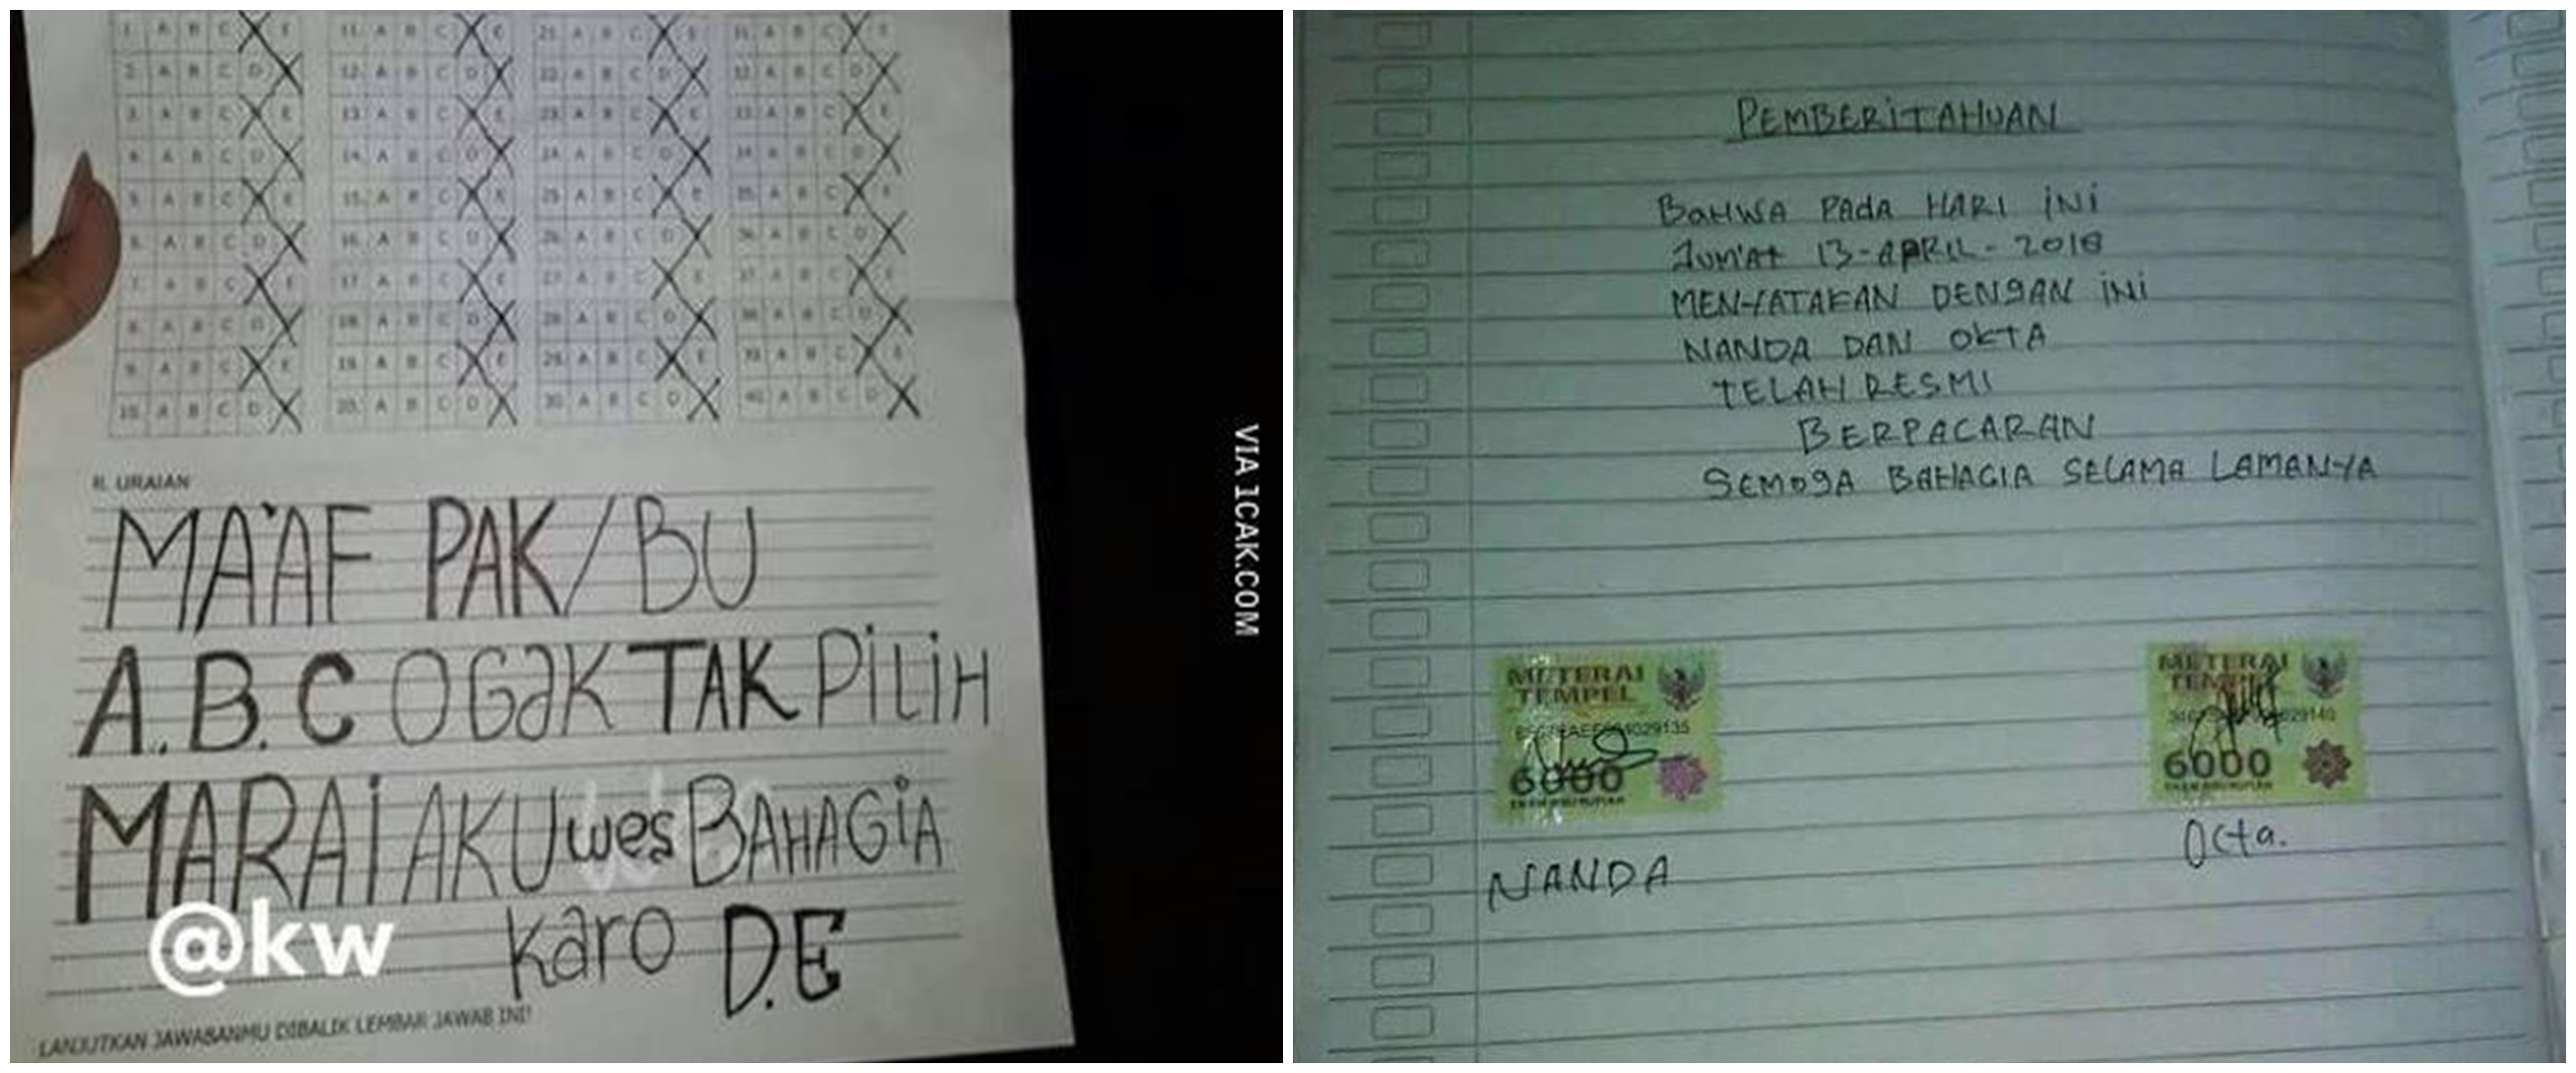 1. A B C E 11. A B C E 21. A B C E 31. A B C E
2. A B C D 12. A B C D 22. A B C D 32. A B C D
3. A B C E 13. A B C E 23. A B C E 33. A B C E
4. A B C D 14. A B C D 24. A B C D 34. A B C D
5. A B C E 15. A B C E 25. A B C E 35. A B C E
6. A B C D 16. A B C D 26. A B C D 36. A B C D
7. A B C E 17. A B C E 27. A B C E 37. A B C E
8. A B C D 18. A B C D 28. A B C D 38. A B C D
9. A B C E 19. A B C E 29. A B C E 39. A B C E
10. A B C D 20. A B C D 30. A B C D 40. A B C D
II. URAIAN
MA'AF PAK/BU
A.B.C OGaK TAK PiLiH
MARAi AKU wes BAHAGiA
karo D.E
@kw
LANJUTKAN JAWABANMU DIBALIK LEMBAR JAWAB INI!
VIA 1CAK.COM
PEMBERiTAHUAN
BaHWA PAdA HARI iNi
Jum'At 13-APRIL-2018
MENYATAKAN DENgAN iNi
NANDA DAN OKTA
TELAH RESMI
BERPACARAN
SEMOgA BAHAGIA SELAMA LAMANYA
METERAI
TEMPEL
6000
ENAM RIBU RUPIAH
NANDA
METERAI
TEMPEL
6000
ENAM RIBU RUPIAH
Octa.